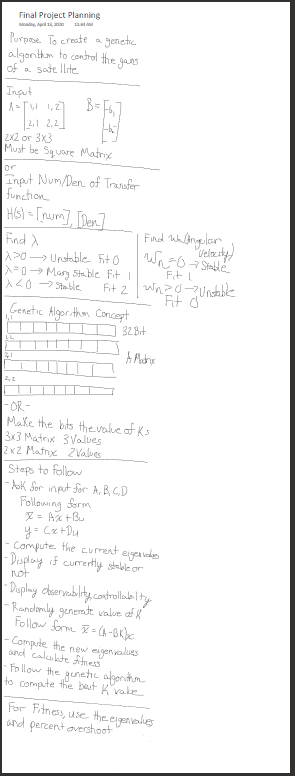 Final Project Planning
Monday, April 13, 2020 11:34 AM
Purpose To create a genetic
algorithm to control the gains
of a satellite
Input
A = [1,1 1,2
2,1 2,2]
B = [b,
b]
2x2 or 3x3
Must be Square Matrix
or
Input Num/Den of Transfer
function
H(s) = [num], [Den]
Find λ
λ>0 → Unstable Fit 0
λ=0 → Marg Stable Fit 1
λ<0 → Stable Fit 2
Find Wn (Angular
Velocity)
Wn=0 → Stable
Fit 1
Wn>0 → Unstable
Fit 0
Genetic Algorithm Concept
1,1
32 Bit
1,2
A Matrix
2,1
2,2
- OR -
Make the bits the value of Ks
3x3 Matrix 3 Values
2x2 Matrix 2 Values
Steps to Follow
- Ask for input for A, B, C, D
Following form
ẋ = Ax + Bu
y = Cx + Du
- Compute the current eigenvalues
- Display if currently stable or
not
- Display observability, controllability
- Randomly generate value of K
Follow form ẋ = (A-BK)x
- Compute the new eigenvalues
and calculate fitness
- Follow the genetic algorithm
to compute the best K value
For Fitness, use the eigenvalues
and percent overshoot